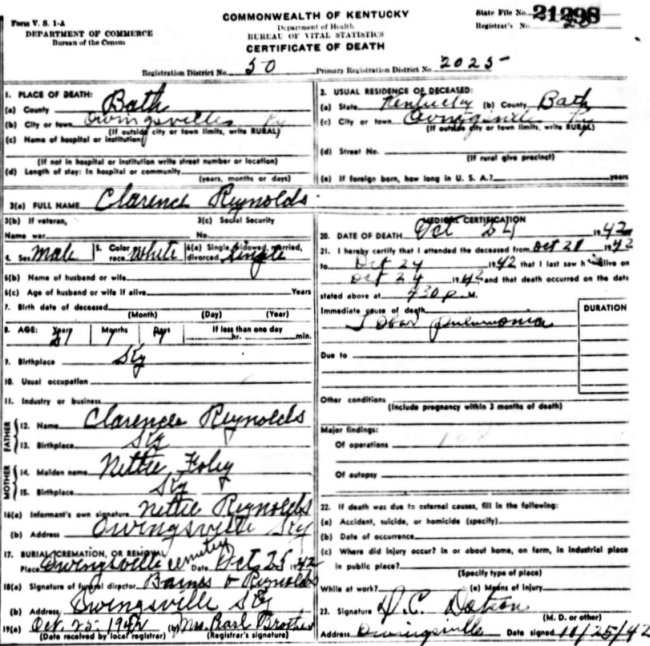 Form V. S. 1-A
DEPARTMENT OF COMMERCE
Bureau of the Census
COMMONWEALTH OF KENTUCKY
Department of Health
BUREAU OF VITAL STATISTICS
CERTIFICATE OF DEATH
State File No. 21298
Registrar's No.
Registration District No. 50 Primary Registration District No. 2025
1. PLACE OF DEATH:
(a) County Bath
(b) City or town Owingsville Ky
(If outside city or town limits, write RURAL)
(c) Name of hospital or institution
(If not in hospital or institution write street number or location)
(d) Length of stay: In hospital or community
(years, months or days)
2. USUAL RESIDENCE OF DECEASED:
(a) State Kentucky (b) County Bath
(c) City or town Owingsville Ky
(If outside city or town limits, write RURAL)
(d) Street No.
(If rural give precinct)
(e) If foreign born, how long in U. S. A.? years
3(a) FULL NAME Clarence Reynolds
3(b) If veteran, 3(c) Social Security
Name war No.
4. Sex male 5. Color race white 6(a) Single, widowed, married, divorced single
6(b) Name of husband or wife
6(c) Age of husband or wife if alive Years
7. Birth date of deceased
(Month) (Day) (Year)
8. AGE: Years Months Days If less than one day
hr. min.
9. Birthplace Ky
10. Usual occupation
11. Industry or business
FATHER
12. Name Clarence Reynolds
13. Birthplace Ky
MOTHER
14. Maiden name Nettie Foley
15. Birthplace Ky
16(a) Informant's own signature Nettie Reynolds
(b) Address Owingsville Ky
17. BURIAL, CREMATION, OR REMOVAL
Place Owingsville cemetery Date Oct 25 1942
18(a) Signature of funeral director Barnes & Reynolds
(b) Address Owingsville Ky
19(a) Oct. 25-1942 (b) Mrs. Karl Brother
(Date received by local registrar) (Registrar's signature)
MEDICAL CERTIFICATION
20. DATE OF DEATH Oct 24 1942
21. I hereby certify that I attended the deceased from Oct 21 1942
to Oct 24 1942 that I last saw him alive on
Oct 24 1942 and that death occurred on the date
stated above at 730 P. M.
Immediate cause of death DURATION
Lobar pneumonia
Due to
Other conditions
(Include pregnancy within 3 months of death)
Major findings:
Of operations
Of autopsy
22. If death was due to external causes, fill in the following:
(a) Accident, suicide, or homicide (specify)
(b) Date of occurrence
(c) Where did injury occur? in or about home, on farm, in industrial place
in public place?
(Specify type of place)
While at work? (e) Means of injury
23. Signature
(M. D. or other)
Address Owingsville Date signed 10/25/42